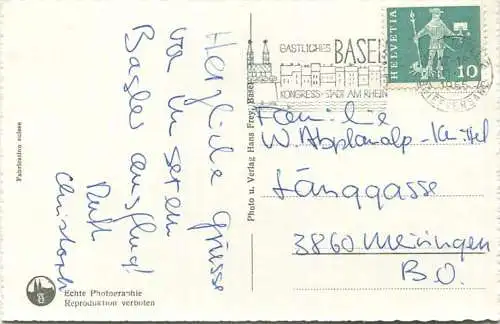 Herzliche Grüsse
von unserem
Basler ausflug!
Ruth
Christoph
Fabrication suisse
Echte Photographie
Reproduktion verboten
Photo u. Verlag Hans Frey, Basel
GASTLICHES BASEL
KONGRESS-STADT AM RHEIN
HELVETIA
10
Familie
W. Abplanalp-
Länggasse
3860 Meiringen
B.O.